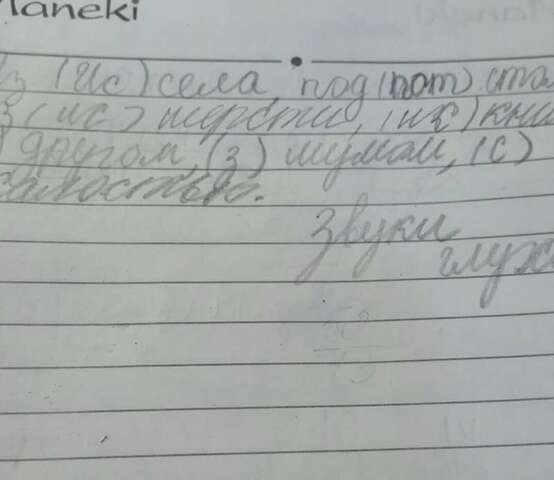 Maneki
Из (Ис) села, под (пот) стол
з (ис) шерсти, (ис) кни
) другом, (з) шумом, (с)
жалостью.
звуки
глух